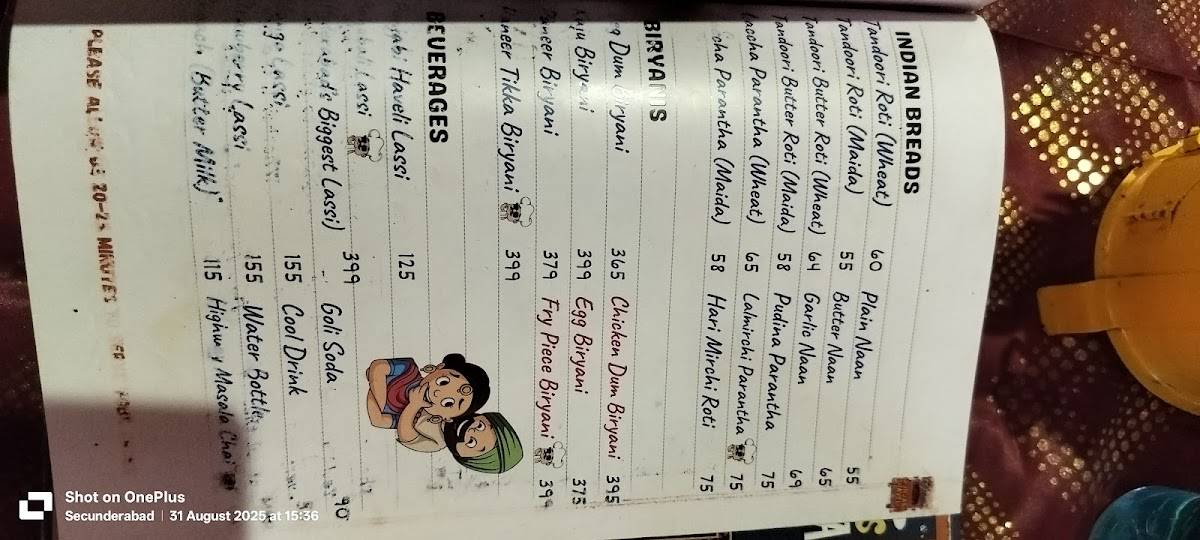 INDIAN BREADS
Tandoori Roti (Wheat) 60 Plain Naan 55
Tandoori Roti (Maida) 55 Butter Naan 65
Tandoori Butter Roti (Wheat) 64 Garlic Naan 69
Tandoori Butter Roti (Maida) 58 Pudina Parantha 75
Laccha Parantha (Wheat) 65 Lalmirchi Parantha 75
Parantha (Maida) 58 Hari Mirchi Roti 75
BIRYANIS
Dum Biryani 365 Chicken Dum Biryani 395
Biryani 399 Egg Biryani 375
Paneer Biryani 379 Fry Piece Biryani 399
Paneer Tikka Biryani 399
BEVERAGES
Haveli Lassi 125
Lassi 399
Biggest Lassi) Goli Soda 90
Lassi 155 Cool Drink
Lassi 155 Water Bottle
(Butter Milk) 115 Highway Masala Chai
PLEASE 20-25 MINUTES
Shot on OnePlus
Secunderabad | 31 August 2025 at 15:36